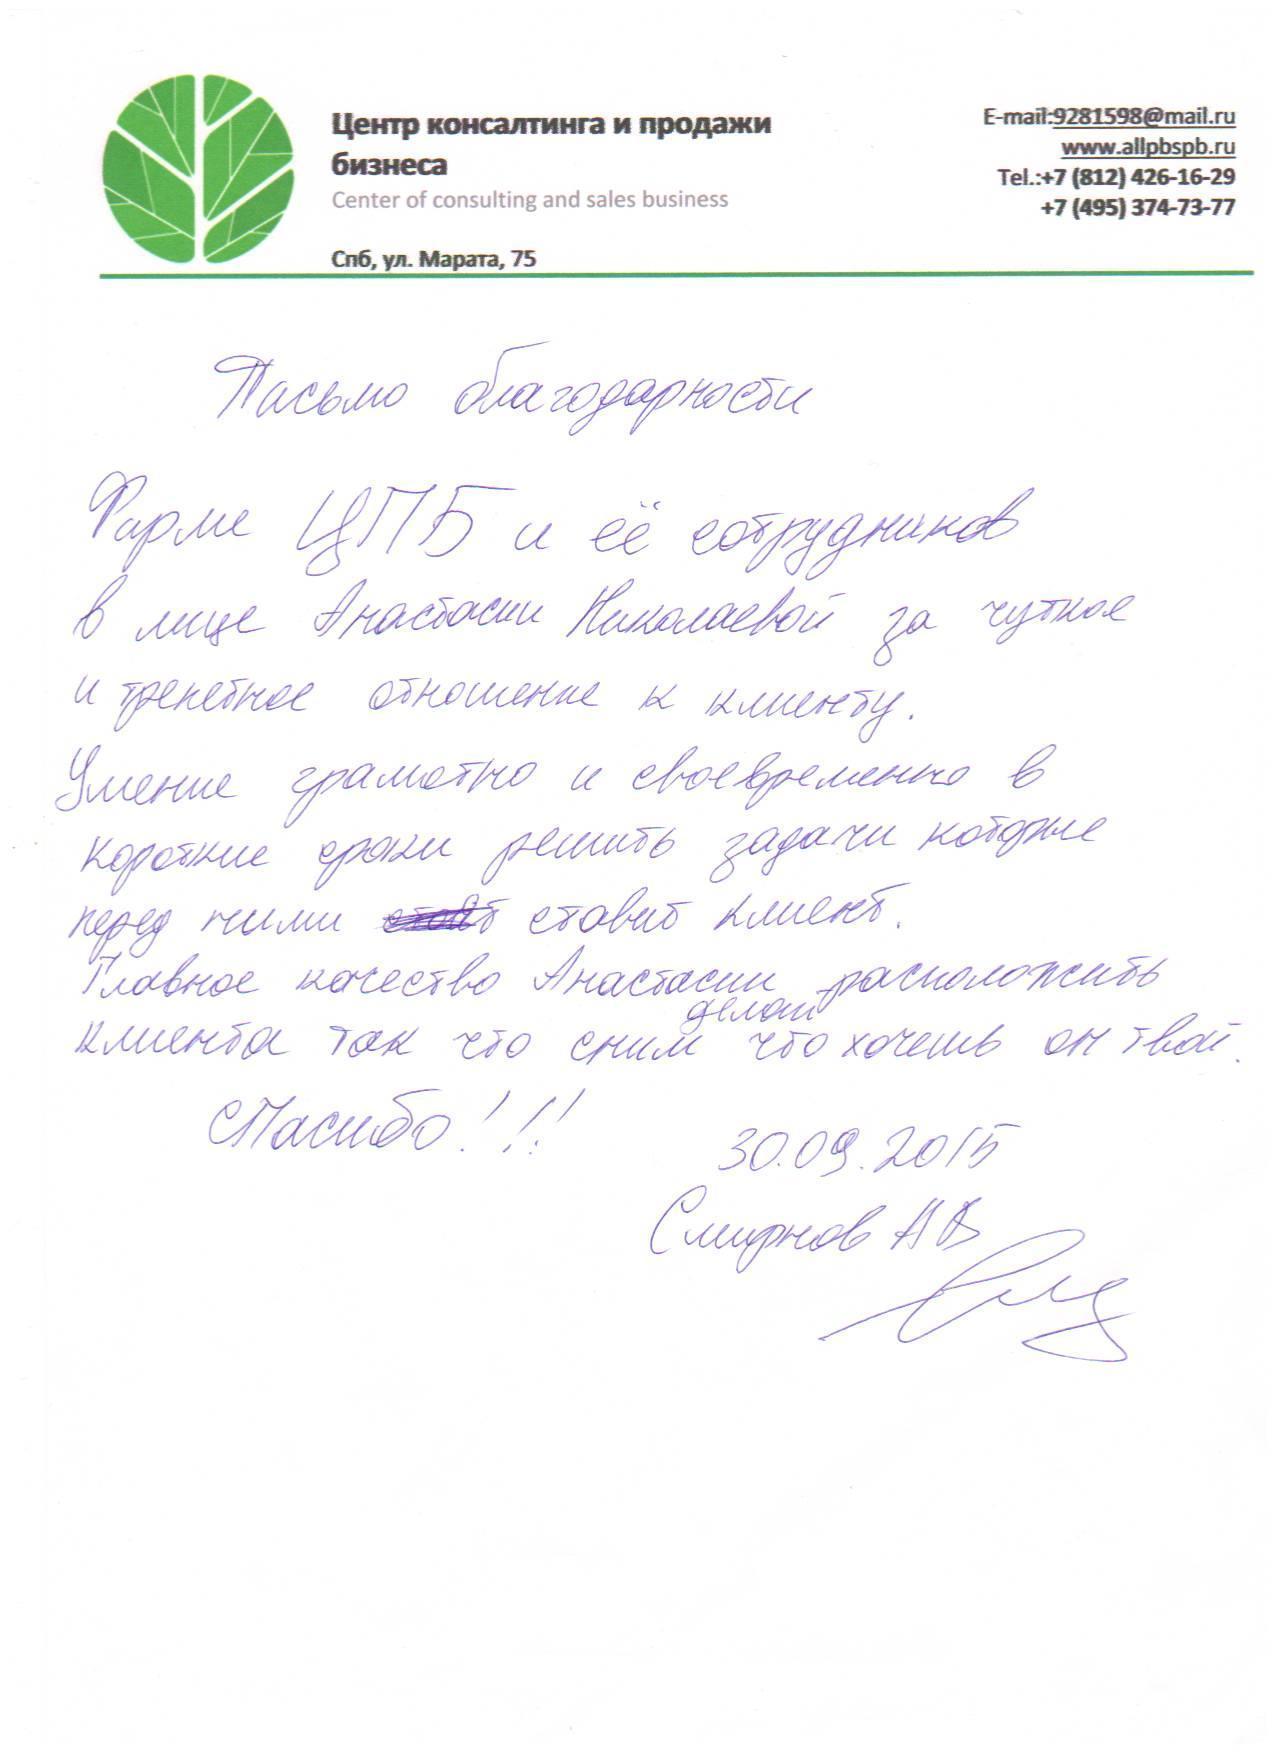 Центр консалтинга и продажи
бизнеса
Center of consulting and sales business
Спб, ул. Марата, 75
E-mail:9281598@mail.ru
www.allpbspb.ru
Tel.:+7 (812) 426-16-29
+7 (495) 374-73-77
Письмо благодарности
Фирме ЦПБ и её сотрудников
в лице Анастасии Николаевой за чуткое
и трепетное отношение к клиенту.
Умение грамотно и своевременно в
короткие сроки решить задачи которые
перед ними ставит клиент.
Главное качество Анастасии расположить
клиента так что сним делай что хочешь он твой.
Спасибо!!!
30.09.2015
Смирнов А В